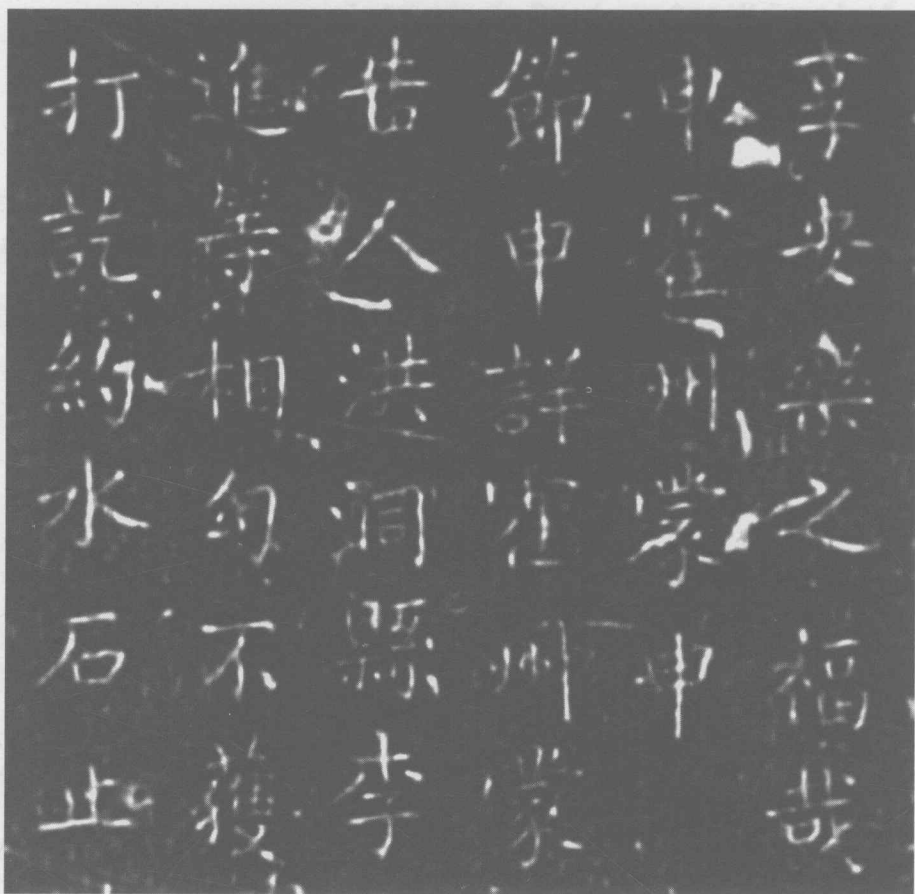 享安樂之福哉
申州蒙申
節申詳州蒙
告人洪洞縣李
進等相勾不獲
打訖約水石止